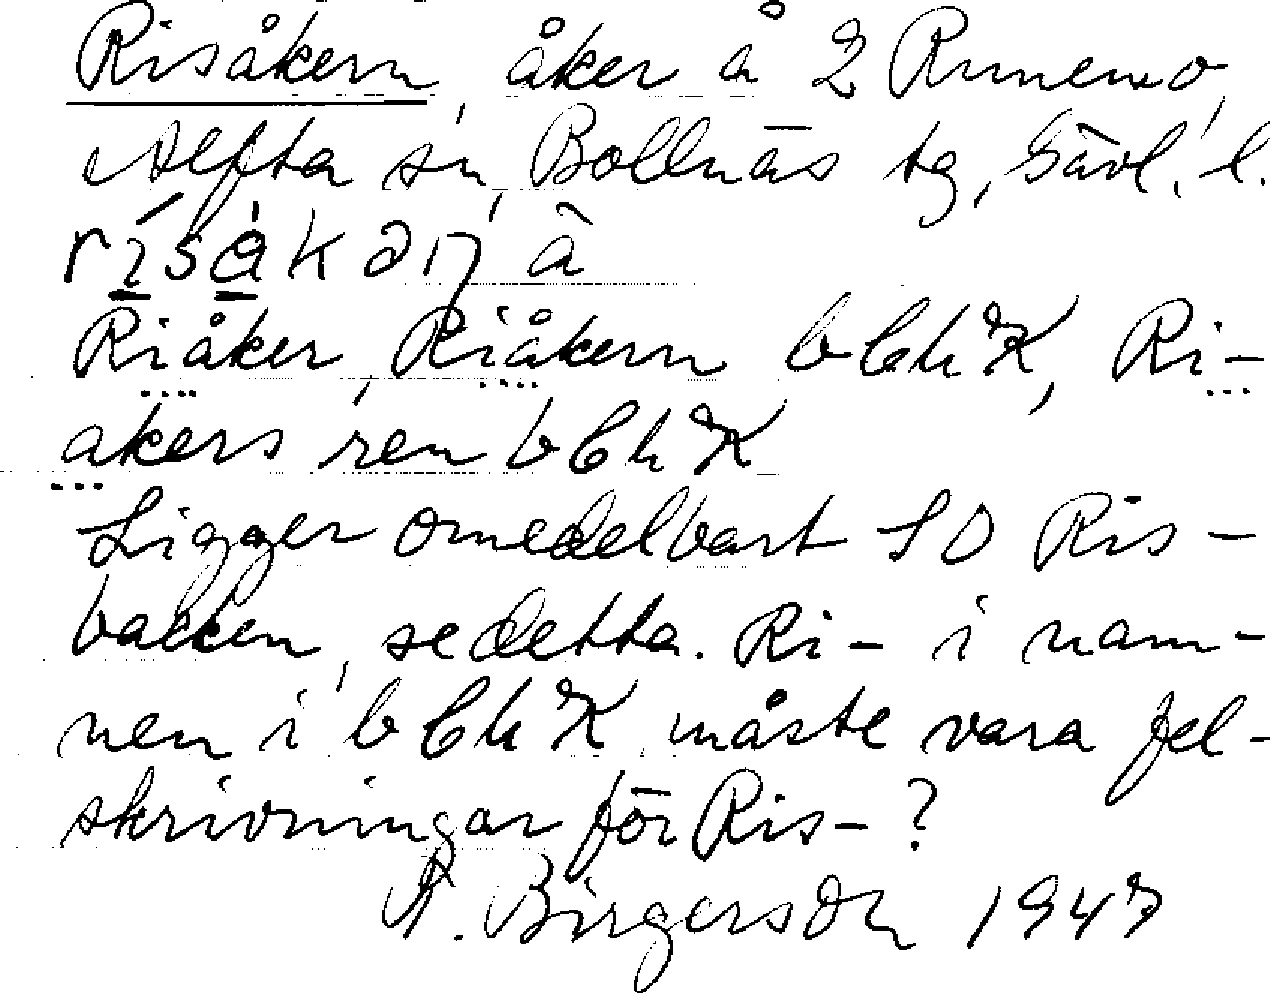 Risåkern, åker å 2 Runemo,
Alfta sn, Bollnäs tg, Gävl. l.
Riåker, Riåkern b Ch 2K, Ri-
åkers ren b Ch 2K
Ligger omedelbart SO Ris-
backen, se detta. Ri- i nam-
nen i b Ch 2K måste vara fel-
skrivningar för Ris-?
A. Birgerson 1947